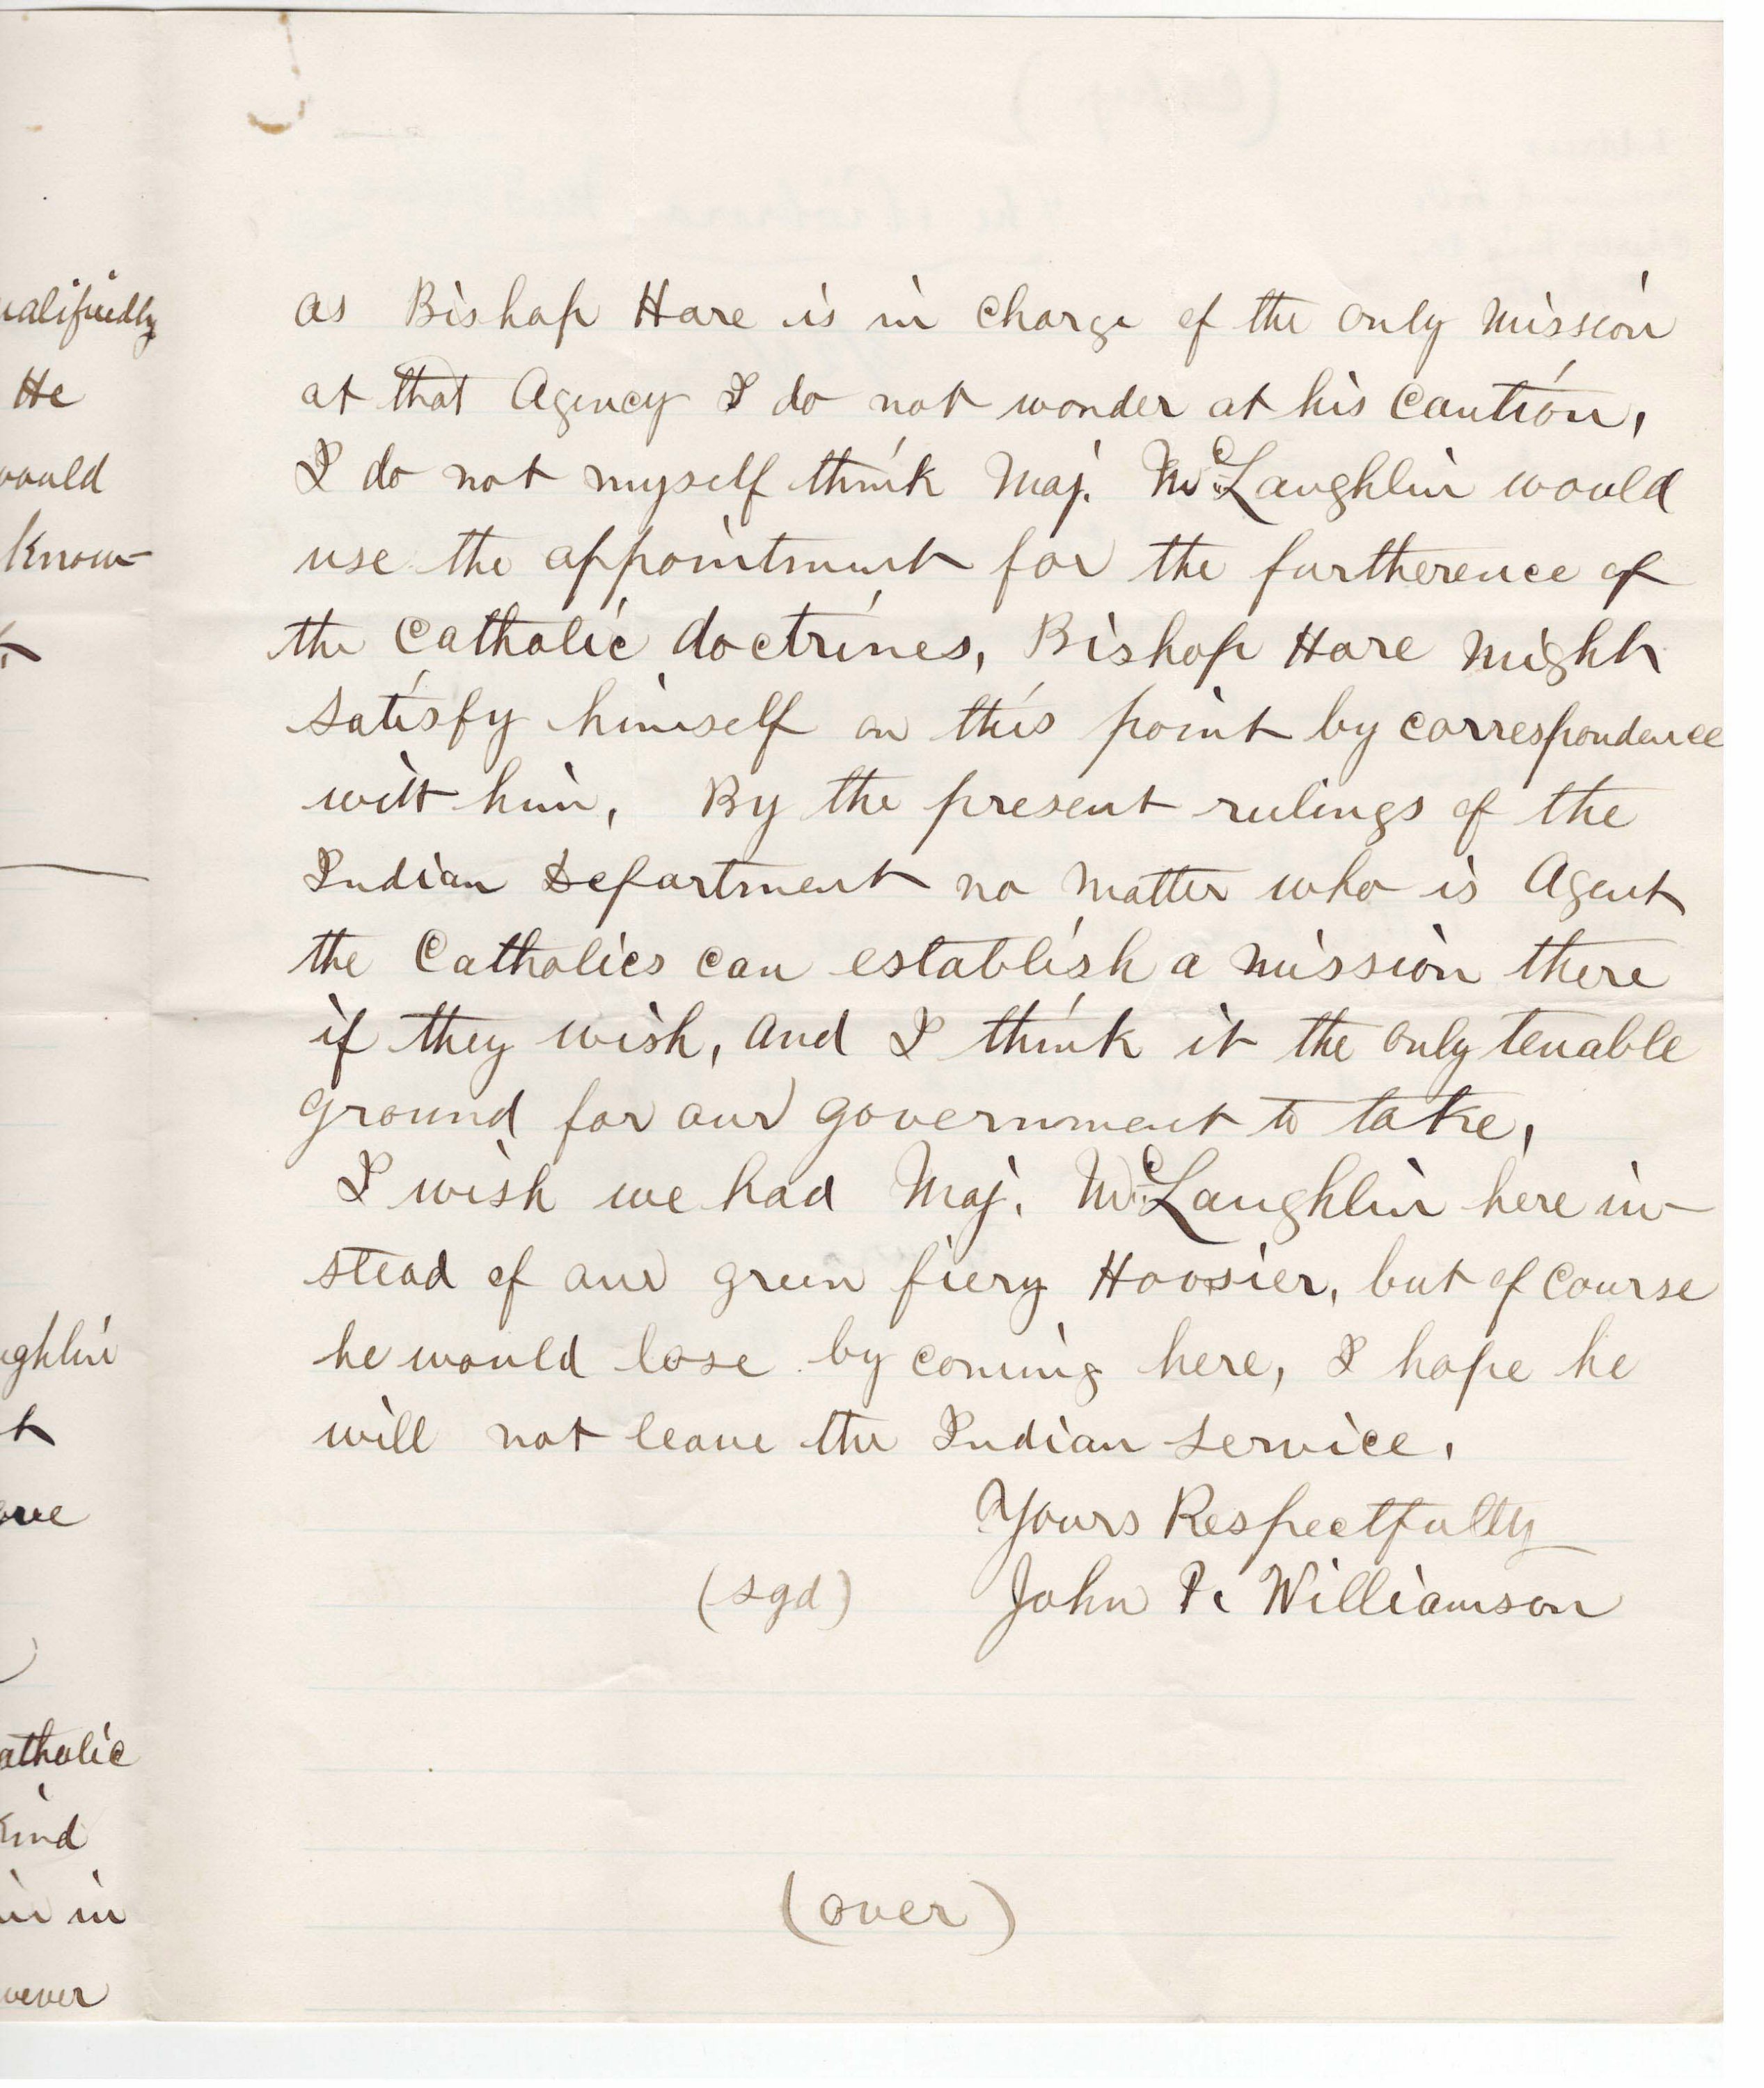 ualifiedly
He
would
know-
ughlin
ove
atholic
kind
in in
wever
as Bishop Hare is in charge of the only mission
at that Agency I do not wonder at his caution,
I do not myself think Maj. McLaughlin would
use the appointment for the furtherence of
the Catholic doctrines, Bishop Hare might
satisfy himself on this point by correspondence
with him, By the present rulings of the
Indian Department no matter who is Agent
the Catholics can establish a mission there
if they wish, and I think it the only tenable
ground for our government to take,
I wish we had Maj. McLaughlin here in-
stead of our green fiery Hoosier, but of course
he would lose by coming here, I hope he
will not leave the Indian service.
Yours Respectfully
(sgd) John P. Williamson
(over)